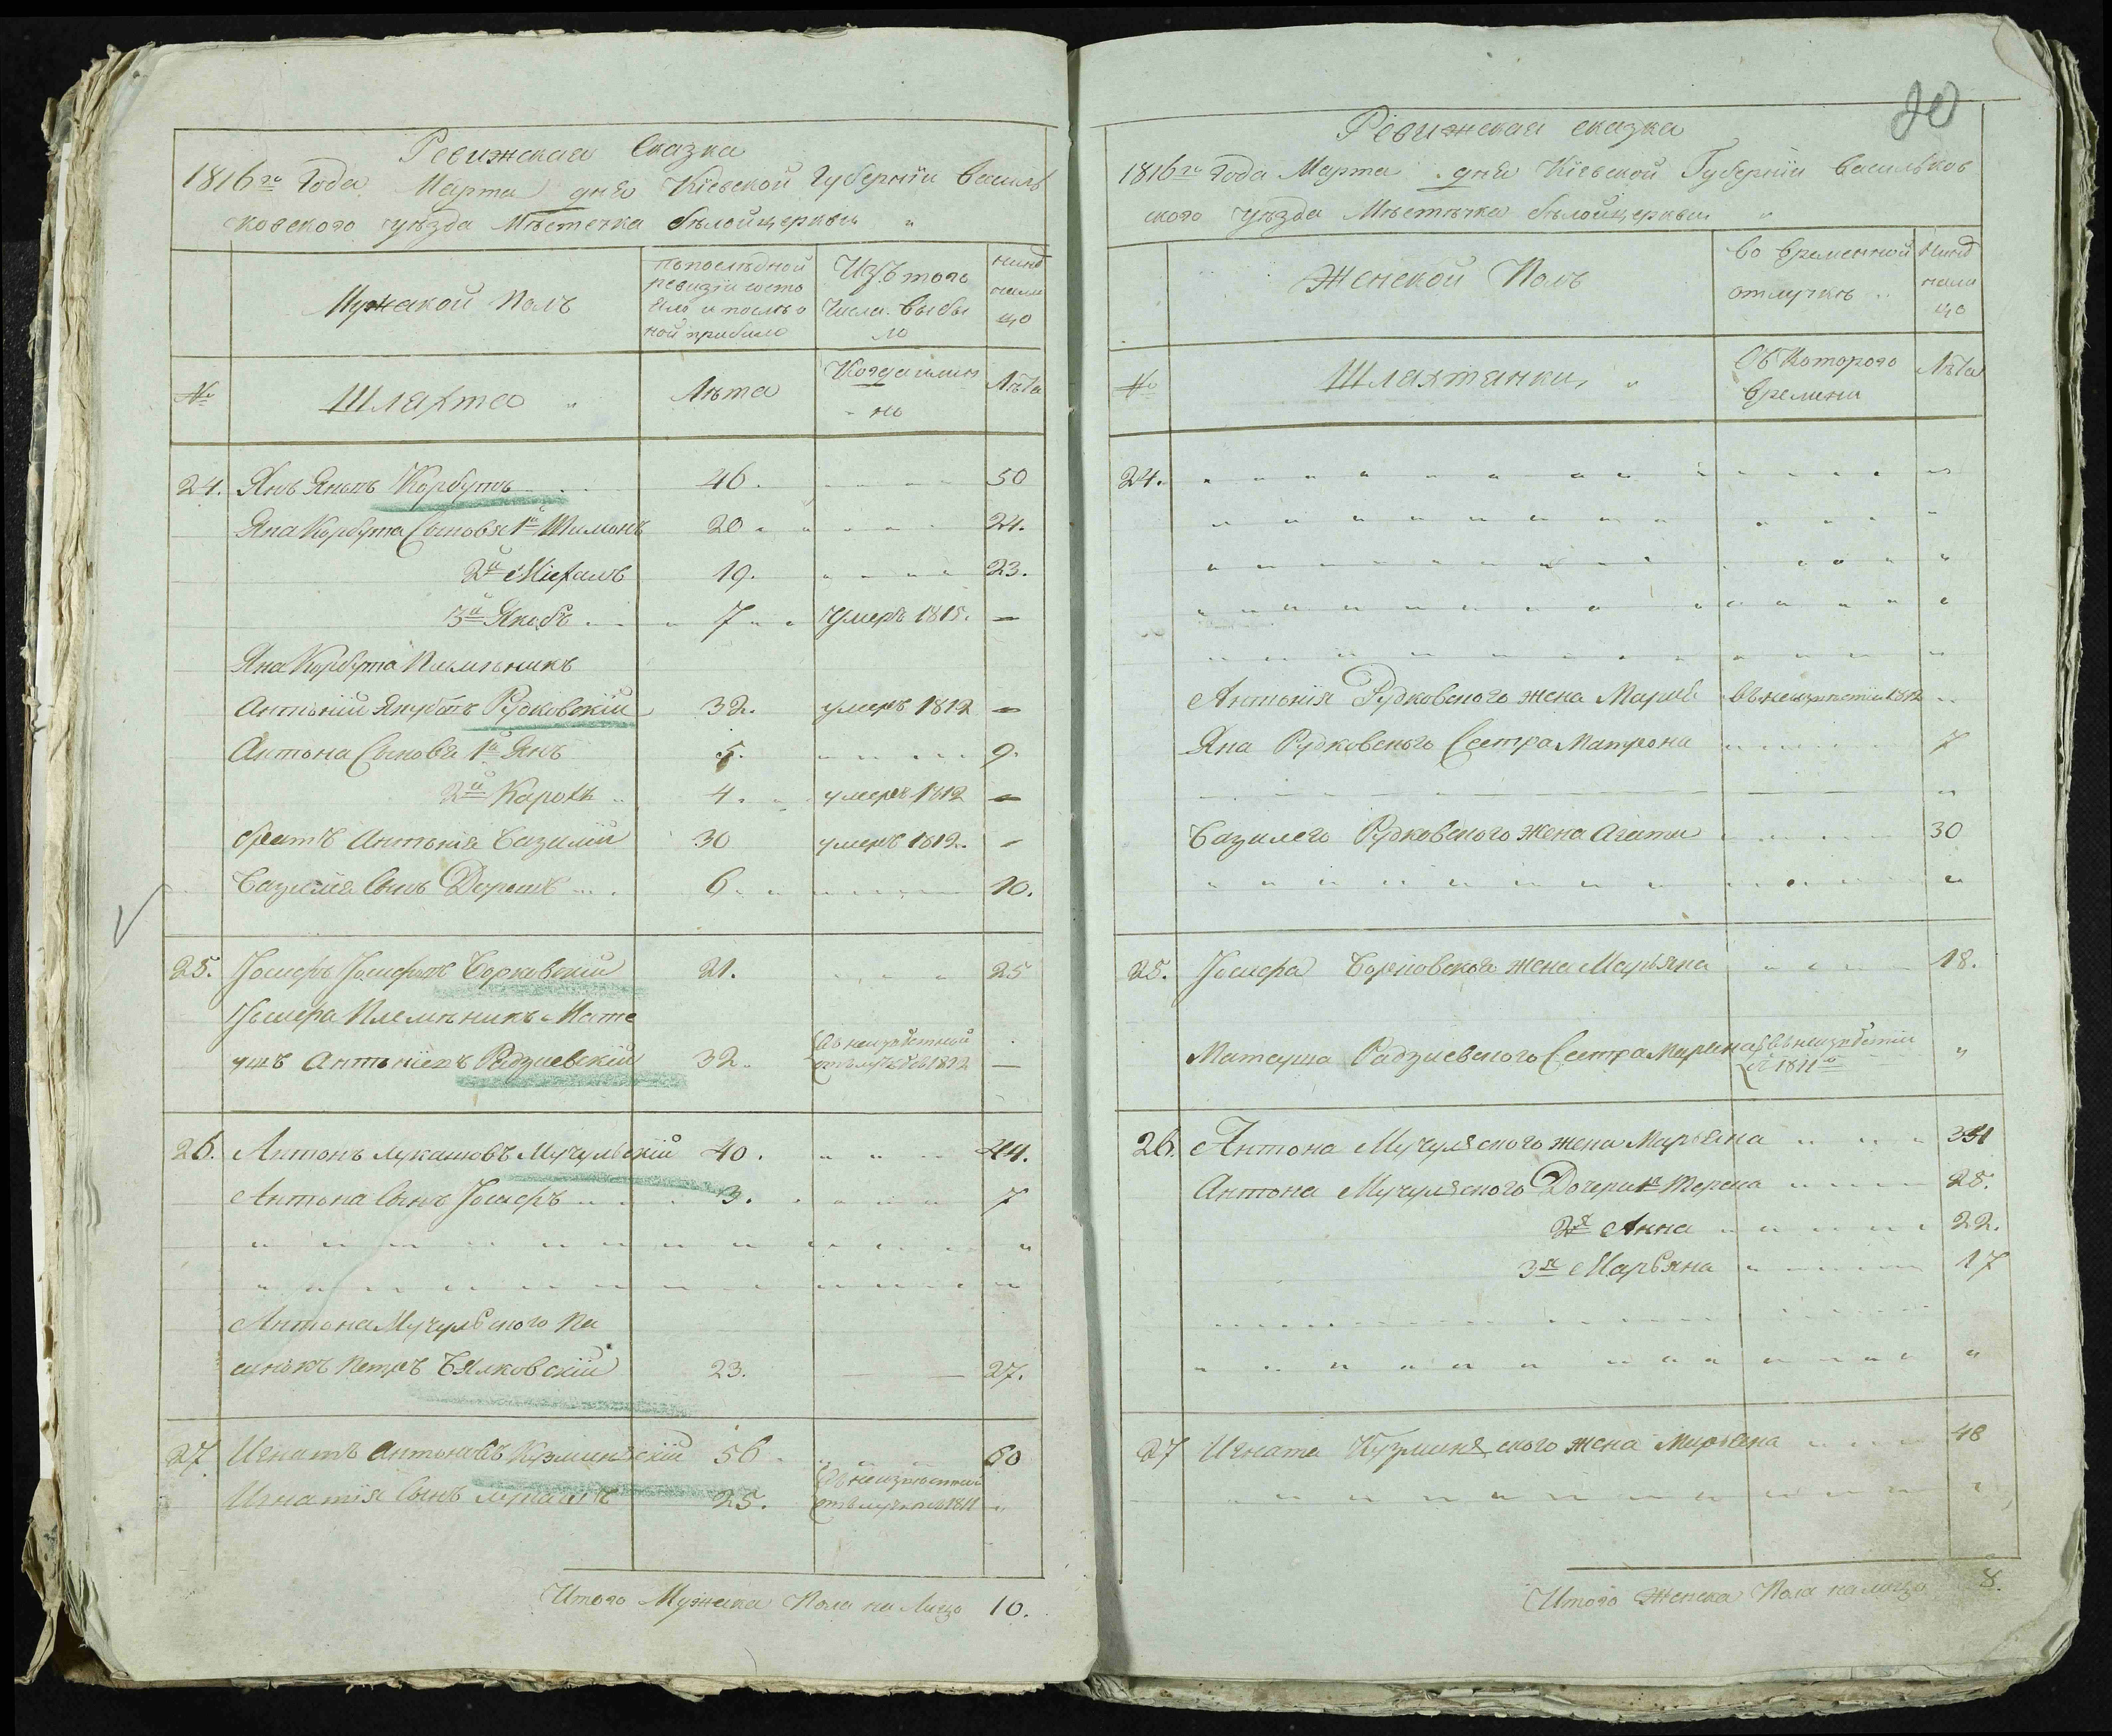 Ревижская Сказка
1816го Года Марта дня Кіевской Губерніи Василь
ковского уѣзда Мѣстечка бѣлойцеркви
Мужской Полъ
попослѣдной ревизіи состо яло и послѣ о ной прибыло
Изъ того Числа Выбы ло
нинѣ нали цо
№
Шляхта
Лѣта
Когда имен но
Лѣта
24. Янъ Яновъ Корбутъ 46. 50
Яна Корбута Сыновья 1й Шимонъ 20 24.
2й Михалъ 19. 23.
3й Якобъ 7 умеръ 1815. —
Яна Корбута Племѣникъ
Антоній Якубовъ Рудковскій 32. умеръ 1812 —
Антона Сыновя 1й Янъ 5. 9.
2й Кароль 4. умеръ 1812 —
братъ Антонія Базилій 30 умеръ 1812. —
Базилія Сынъ 6 10.
25. Іосифъ Іосифовъ Борковскій 21. 25
Іосифа Племѣникъ Мате
ушъ Антоніевъ Радзиевскій 32. Въ неизвѣстной отълучкѣ 1812 —
26. Антонъ Лукашовъ Мучульскій 40. 44.
Антона Сынъ Іосифъ 3. 7
Антона Мучульского Па
синокъ Петръ Бялковскій 23. 27.
27 Игнатъ Антоновъ Кузминскій 56 60
Игнатія Сынъ Лукашъ 25. Въ неизвѣстной отълучкѣ 1811
Итого Мужска Пола на Лицо 10.
20
Ревижская сказка
1816го Года Марта дня Кіевской Губерніи Васильков
ского уѣзда Мѣстѣчка бѣлойцеркви
Женской Полъ
Во временной отлучкѣ
Нинѣ нали цо
№
Шляхтянки
Съ Которого времени
Лѣта
24.
Антонія Рудковского жена Марія въ неизвѣстіи 1812
Яна Рудковского Сестра Матрона 7
Базилего Рудковского Жена Агата 30
25. Іосифа Борковского жена Марьяна 18.
Матеуша Радзиевского Сестра Маріяна въ неизвѣстіи с 1811го
26. Антона Мучульского жена Марьяна
Антона Мучульского Дочери 1я Тереса 25.
2я Анна 22.
3я Марьяна 17
27 Игната Кузминского жена Марьяна 48
Итого Женска Пола налицо 8.